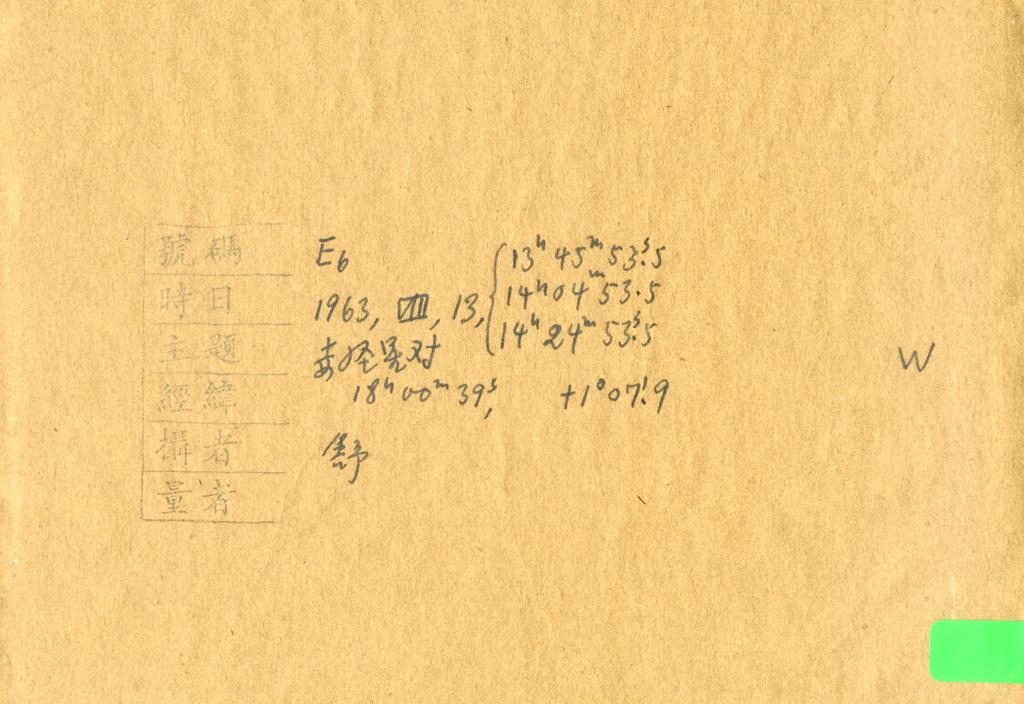 號碼 E6
時日 1963, VIII, 13, { 13ʰ 45ᵐ 53ˢ.5
14ʰ 04ᵐ 53.5
14ʰ 24ᵐ 53ˢ.5
主題
經緯 18ʰ 00ᵐ 39ˢ, +1°07'.9
攝者 舒
量者
W